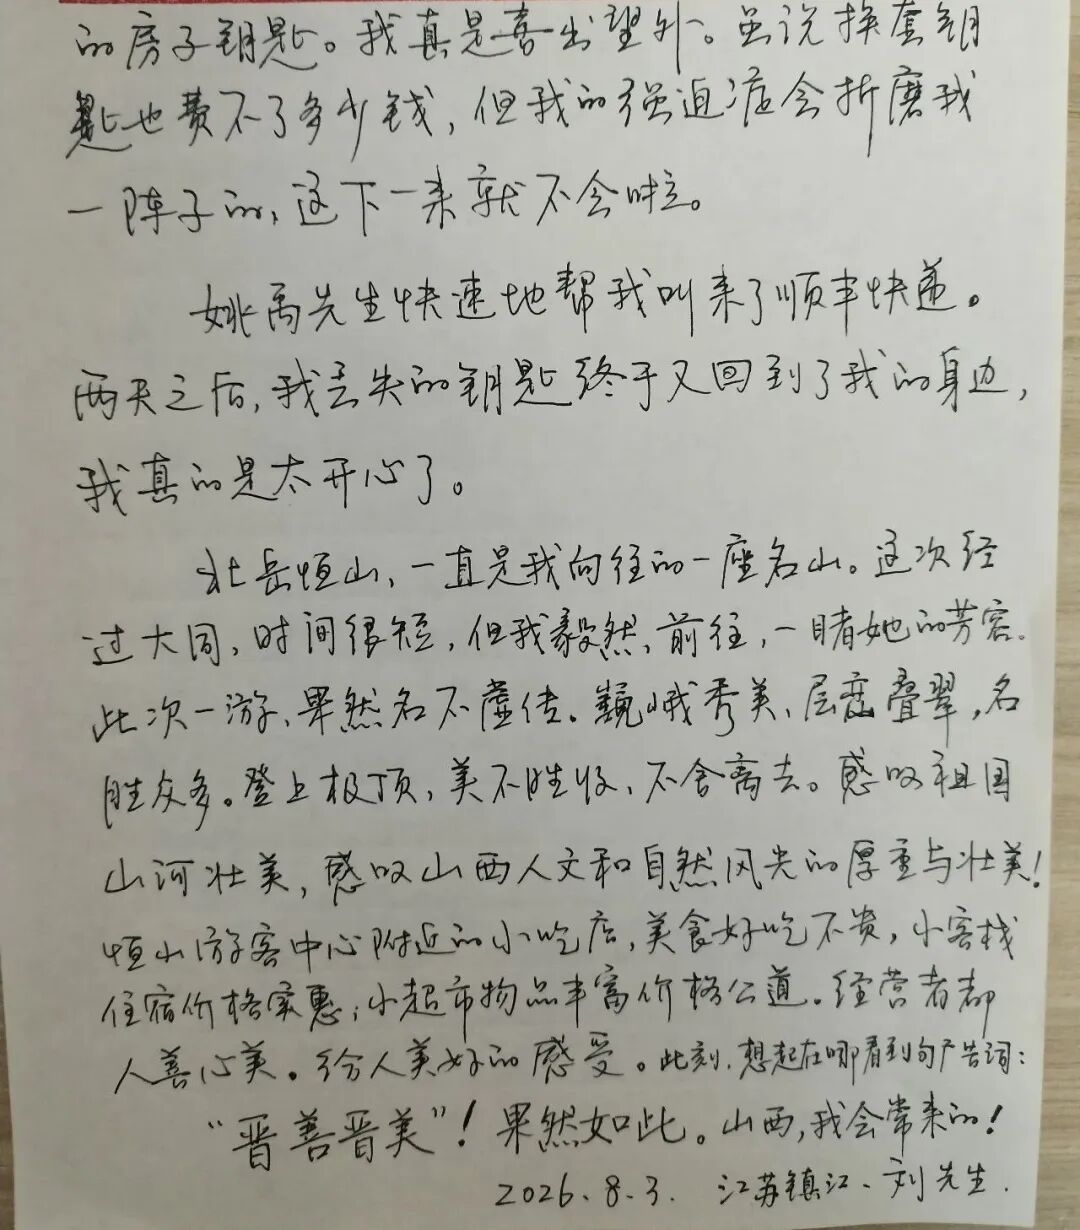 的房子钥匙。我真是喜出望外。虽说换套钥
匙也费不了多少钱，但我的强迫症会折磨我
一阵子的，这下一来就不会啦。
姚禹先生快速地帮我叫来了顺丰快递。
两天之后，我丢失的钥匙终于又回到了我的身边，
我真的是太开心了。
北岳恒山，一直是我向往的一座名山。这次经
过大同，时间很短，但我毅然，前往，一睹她的芳容。
此次一游，果然名不虚传。巍峨秀美、层峦叠翠，名
胜众多。登上极顶，美不胜收，不舍离去。感叹祖国
山河壮美，感叹山西人文和自然风光的厚重与壮美！
恒山游客中心附近的小吃店，美食好吃不贵，小客栈
住宿价格实惠，小超市物品丰富价格公道。经营者都
人善心美。给人美好的感受。此刻，想起在哪看到句广告词：
“晋善晋美”！果然如此。山西，我会常来的！
2026.8.3. 江苏镇江、刘先生.